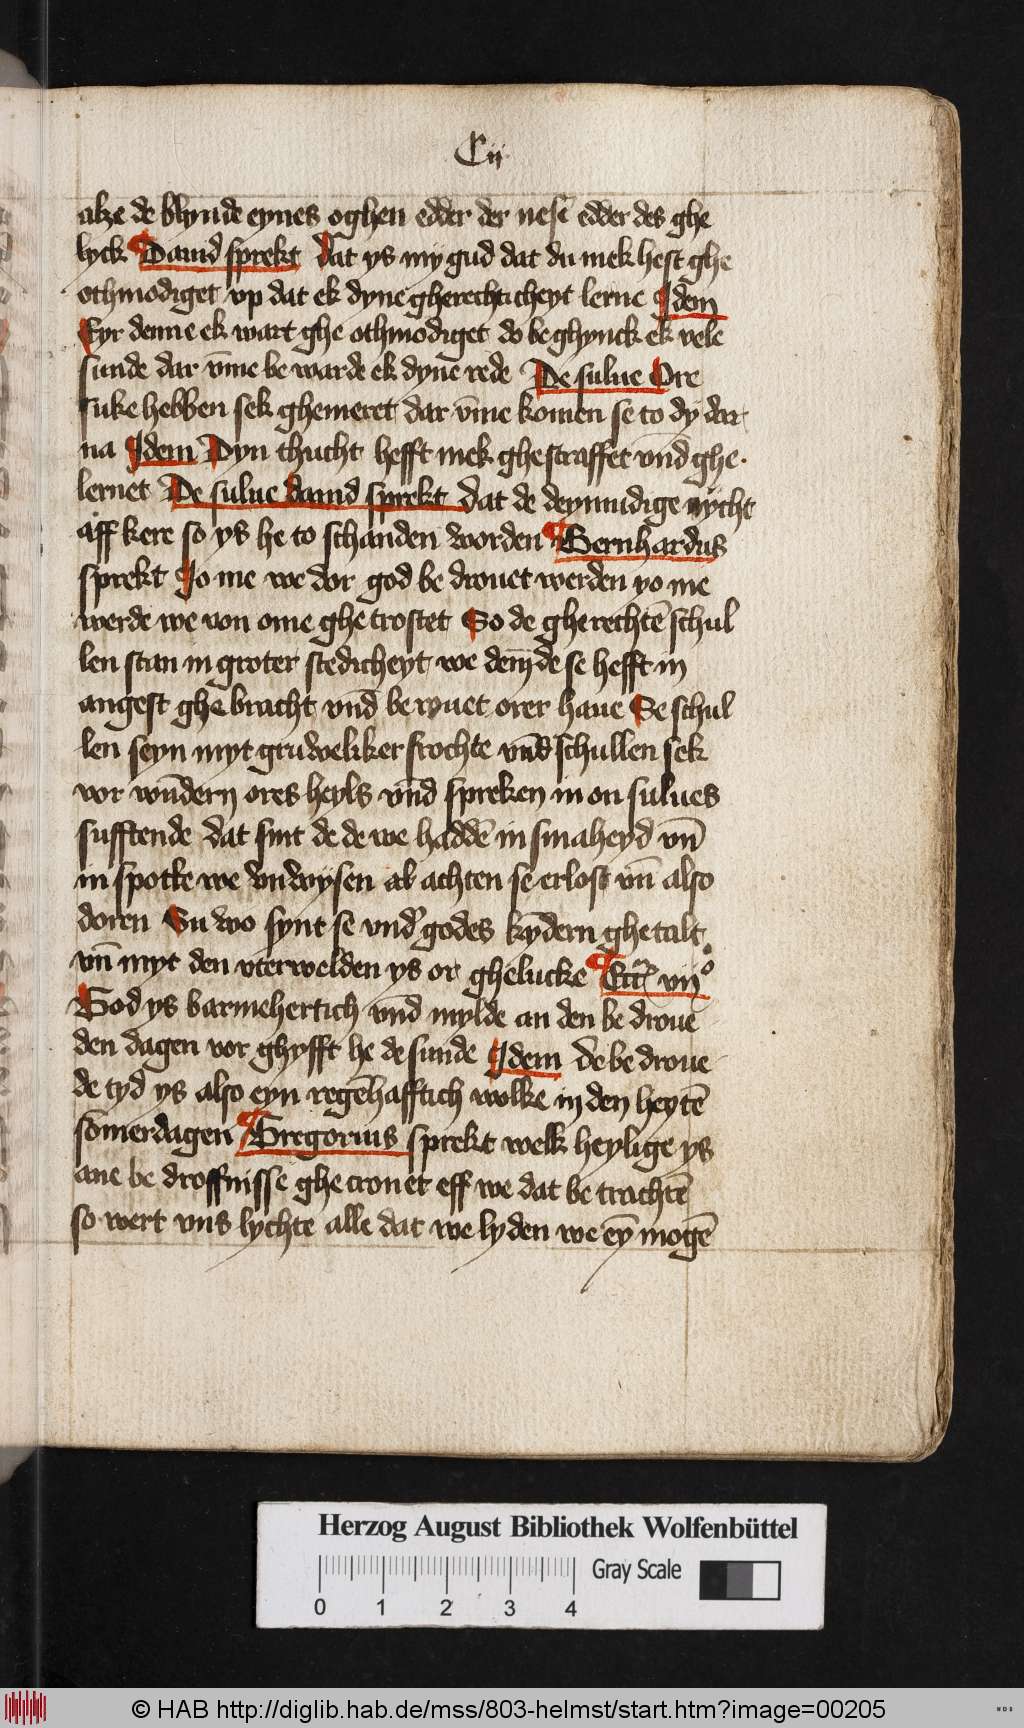 Cij
alze de blynde eynes oghen edder der nese edder des ghe
lyck Dauid sprekt Dat ys my gud dat du mek hest ghe
othmodiget vp dat ek dyne gherechticheyt lerne Idem
Eyr denne ek wart ghe othmodiget do be ghynck ek vele
sunde dar vm̄e be warde ek dyne rede De sulue Ore
suke hebben sek ghemeret dar vm̄e komen se to dy dar
na Idem Dyn thucht hefft mek ghestraffet vn̄d ghe
lernet De sulue dauid sprekt dat de deymudige nycht
aff kere so ys he to schanden worden Bernhardus
sprekt Jo me we dor god be drouet werden yo me
werde we von ome ghe trostet So de gherechtē schul
len stan in groter stedicheyt we den de se hefft in
angest ghe bracht vn̄d be rouet orer haue Se schul
len seyn myt gruweliker frochte vn̄d schullen sek
vor wn̄dern ores heyls vn̄d spreken in on sulues
sufftende dat sint de de we haddē in smaheyd vn̄
in spotke we vnwysen ak achten se erlost vn̄ also
doren Su wo synt se vnd' godes kȳdern ghetalt
vn̄ myt den vterwelden ys or ghelucke Ecc͛ vij°
God ys barmehertich vn̄d mylde an den be droue
den dagen vor ghyfft he de sunde Idem de be droue
de tyd ys also eyn regēhafftich wolke in den heytē
somerdagen Gregorius sprekt welk heylige ys
ane be droffnisse ghe cronet eff we dat be trachtē
so wert vns lychte alle dat we lyden we eȳ mogē
Herzog August Bibliothek Wolfenbüttel
Gray Scale
0 1 2 3 4
© HAB http://diglib.hab.de/mss/803-helmst/start.htm?image=00205